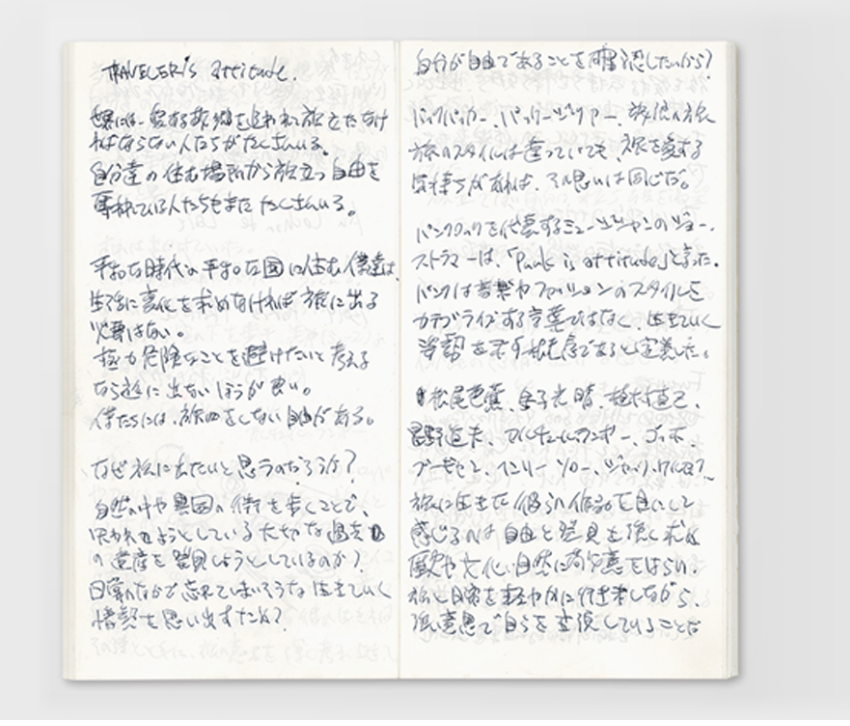 TRAVELER's attitude.
世界には、愛する故郷を追われ旅立たなけ
ればならない人たちがたくさんいる。
自分達の住む場所から旅立つ自由を
奪われている人たちもまたたくさんいる。
平和な時代の平和な国に住む僕達は、
生活に変化を求めなければ旅に出る
必要はない。
極力危険なことを避けたいと考える
なら旅に出ないほうが良い。
僕たちには、旅をしない自由がある。
なぜ旅に出たいと思うのだろうか?
自然の中や異国の街を歩くことで、
失われようとしている大切な過去
の遺産を発見しようとしているのか?
日常のなかで忘れてしまいそうな生きていく
情熱を思い出すため?
自分が自由であることを確認したいから?
バックパッカー、バッグ 、放浪の旅
旅のスタイルは違っていても、旅を愛する
気持ちがあれば、その思いは同じだ。
パンクロックを代表するミュージシャンのジョー・
ストラマーは、「Punk is attitude」と言った。
パンクは音楽やファッションのスタイルを
カテゴライズする言葉ではなく、生きていく
姿勢を示す 言葉であると定義した。
松尾芭蕉、金子光晴、植村直己、
星野道夫、アルチュール・ランボー、ゴッホ、
ゴーギャン、ヘンリー・ソロー、ジャック・ケルアック
旅に生きた彼らの作品を目にして
感じるのは自由と発見を強く求め
歴史や文化、自然に 敬意をはらい、
旅と日常を軽やかに行き来しながら、
強い意思で自らを表現していることだ